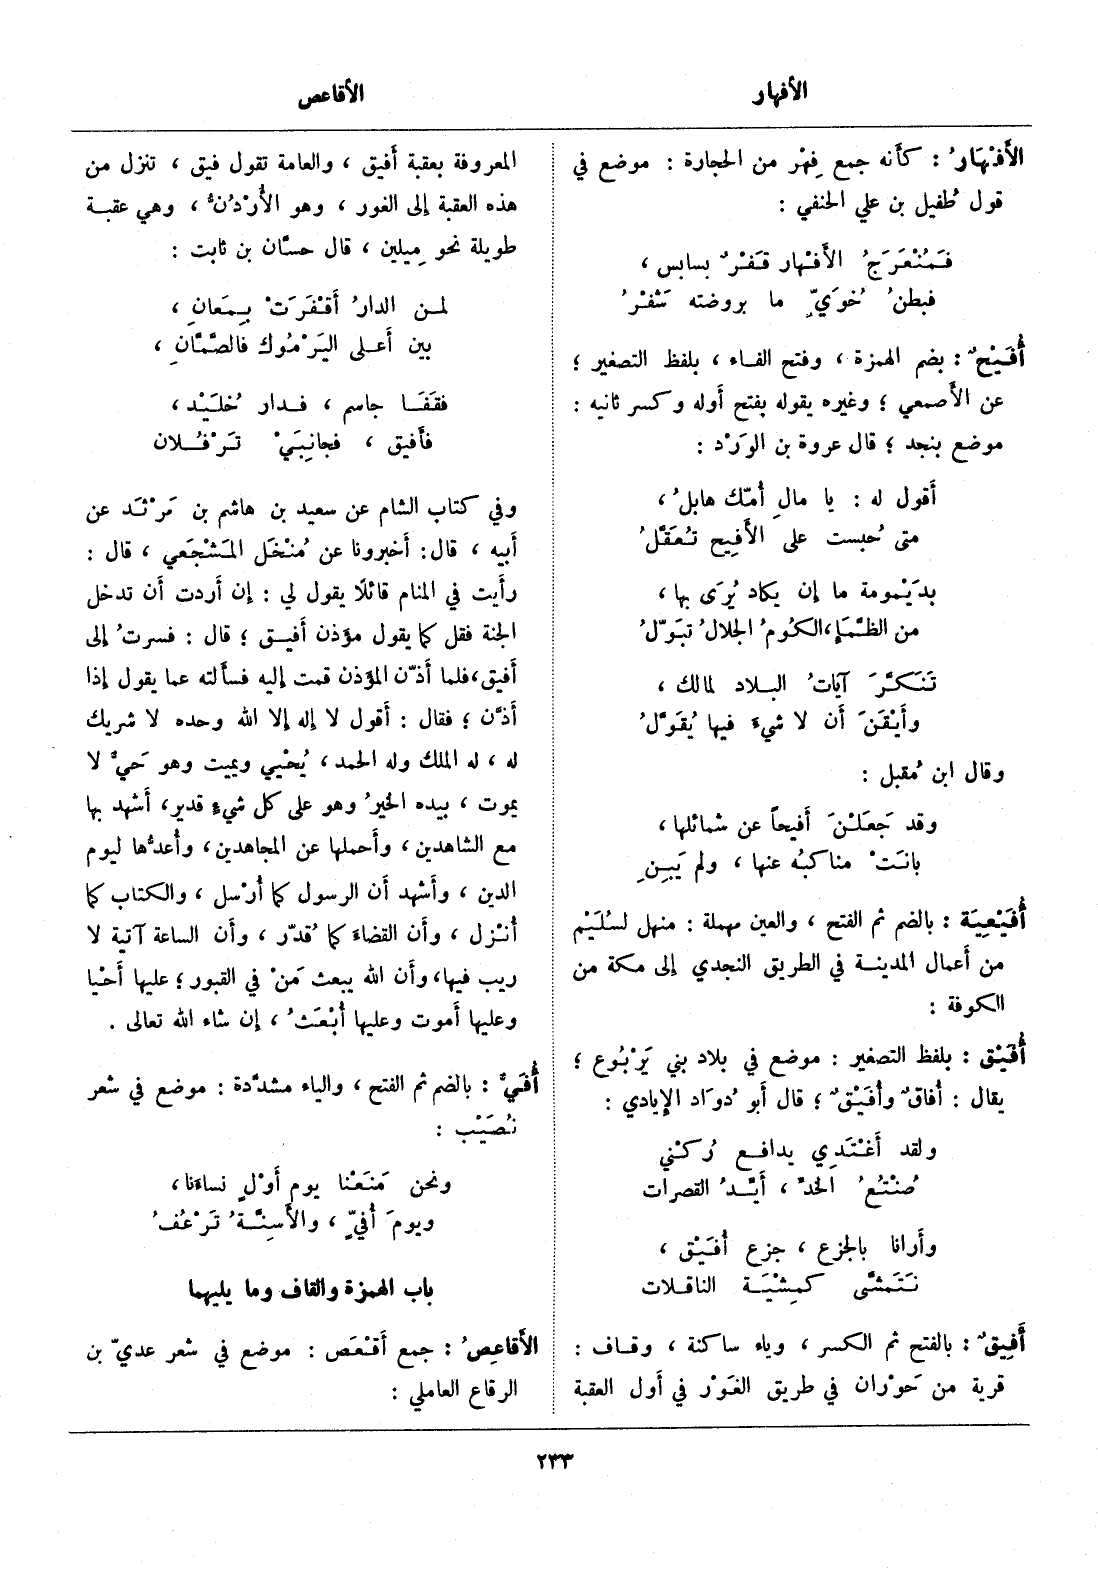 الأفهار
الأقاعص
الأَفْهَارُ : كأنه جمع فِهْر من الحجارة : موضع في
قول طُفيل بن علي الحنفي :
فَمُنْعَرَجُ الأَفْهار قَفْرٌ بسابس ،
فبطنُ خُوَيٍّ ما بروضته شَفْرُ
أُفَيْح ٌ : بضم الهمزة ، وفتح الفاء ، بلفظ التصغير ؛
عن الأَصمعي ؛ وغيره يقوله بفتح أوله وكسر ثانيه :
موضع بنجد ؛ قال عروة بن الوَرْد :
أَقول له : يا مالِ أُمّك هابلُ ،
متى حُبست على الأَفيح تُعقَلُ
بدَيْمومة ما إن يكاد يُرَى بها ،
من الظَّمَإِ، الكُومُ الجلالُ تبَوّلُ
تَنَكَّرَ آيَاتُ البلاد لمالك ،
وأَيْقَنَ أَن لا شيءَ فيها يُقَوَّلُ
وقال ابن مُقبل :
وقد جَعَلْنَ أَفيحاً عن شمائلها ،
بانَتْ مناكبُه عنها ، ولم يَبِنِ
أُفَيْعِيَة : بالضم ثم الفتح ، والعين مهملة : منهل لسُلَيْم
من أَعمال المدينة في الطريق النجدي إلى مكة من
الكوفة :
أُفَيْق : بلفظ التصغير : موضع في بلاد بني يَرْبُوع ؛
يقال : أُفاقٌ وأُفَيْقٌ ؛ قال أَبو دُوَاد الإيادي :
ولقد أَغْتَدِي يدافع رُكْني
صُنْتُعُ الخدّ ، أَيِّدُ القصرات
وأَرانا بالجزع ، جزع أُفَيْق ،
نَتَمَشَّى كمِشْيَة الناقلات
أَفِيقٌ : بالفتح ثم الكسر ، وياء ساكنة ، وقاف :
قرية من حَوْران في طريق الغَوْر في أَول العقبة
المعروفة بعقبة أَفيق ، والعامة تقول فيق ، تنزل من
هذه العقبة إلى الغور ، وهو الأُرْدُنُّ ، وهي عقبة
طويلة نحو مِيلين ، قال حسَّان بن ثابت :
لمن الدارُ أَقْفَرَتْ بِمَعانِ ،
بين أَعلى اليَرْمُوك فالصَّمَّانِ ،
فقَفَا جاسم ، فدار خُلَيْد ،
فأَفيق ، فجانِبَيْ تَرْفُلان
وفي كتاب الشام عن سعيد بن هاشم بن مَرْثَد عن
أَبيه ، قال : أَخبرونا عن مُنْخَل المَشْجَعي ، قال :
رأَيت في المنام قائلًا يقول لي : إن أَردت أَن تدخل
الجنة فقل كما يقول مؤذن أَفيق ؛ قال : فسرتُ إلى
أَفيق ، فلما أَذّن المؤذن قمت إليه فسأَلته عما يقول إذا
أَذَّن ؛ فقال : أَقول لا إله إلا الله وحده لا شريك
له ، له الملك وله الحمد ، يُحْيي ويميت وهو حَيٌّ لا
يموت ، بيده الخيرُ وهو على كل شيءٍ قدير ، أَشهد بها
مع الشاهدين ، وأَحملها عن المجاهدين ، وأُعدُّها ليوم
الدين ، وأَشهد أَن الرسول كما أُرْسل ، والكتاب كما
أُنْزل ، وأَن القضاءَ كما قُدّر ، وأَن الساعة آتية لا
ريب فيها ، وأَن الله يبعث مَنْ في القبور ؛ عليها أَحْيا
وعليها أَموت وعليها أُبْعَثُ ، إن شاء الله تعالى .
أُفَيٌّ : بالضم ثم الفتح ، والياء مشدَّدة : موضع في شعر
نُصَيْب :
ونحن مَنَعْنا يوم أَوْلٍ نساءَنا ،
ويومَ أُفيٍّ ، والأَسِنَّةُ تَرْعُفُ
باب الهمزة والقاف وما يليهما
الأَقاعِصُ : جمع أَقْعَص : موضع في شعر عديّ بن
الرقاع العاملي :
٢٣٣